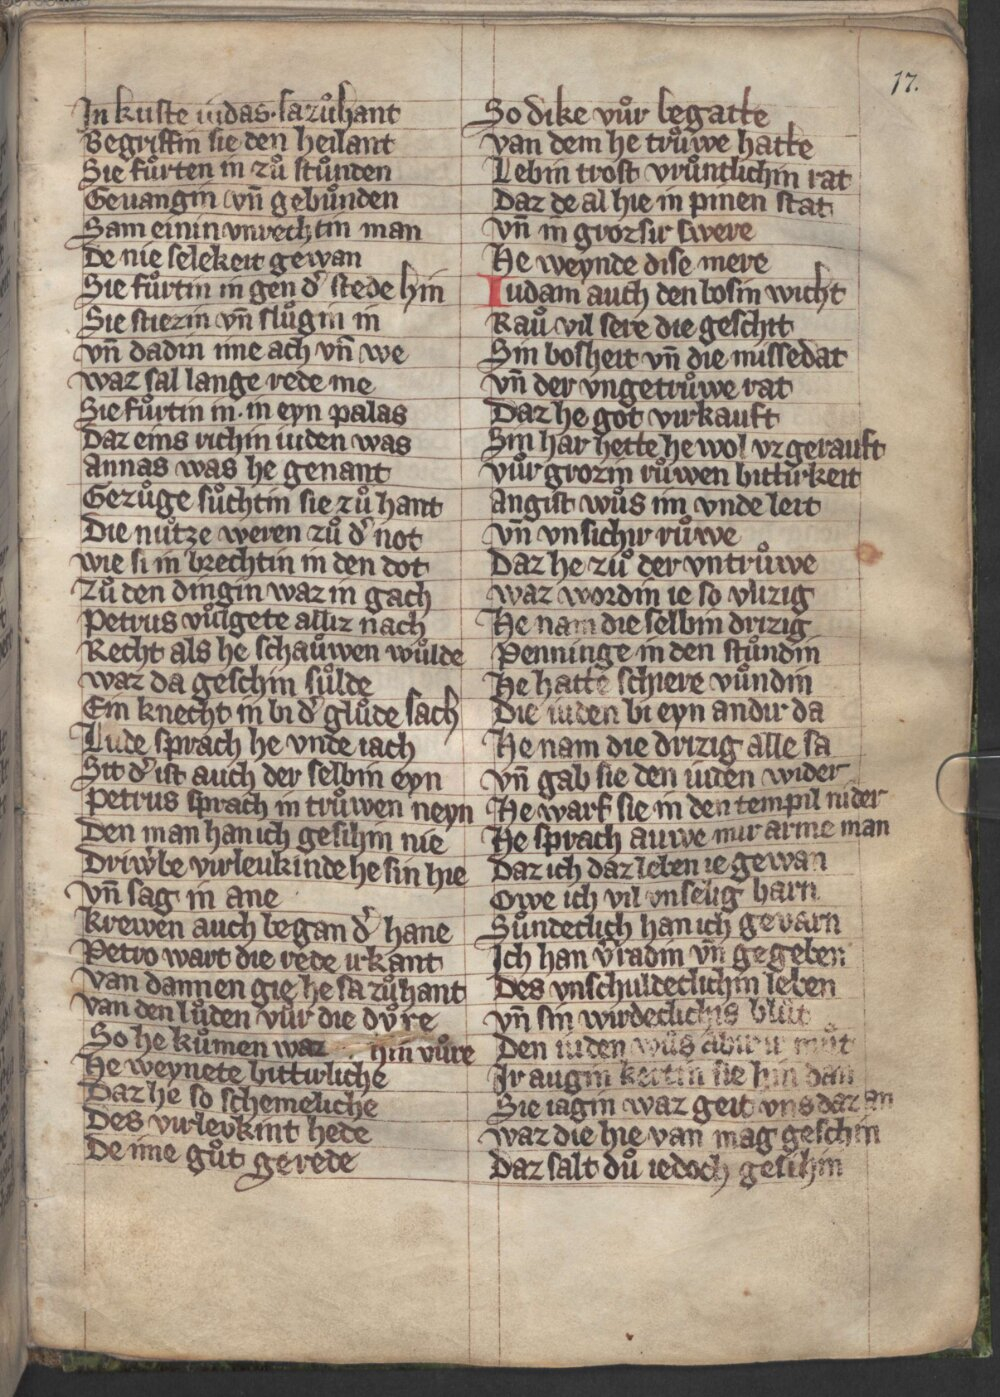 17.
In kuste iudas· sa zuͦhant
Begriffin sie den heilant
Sie fuͦrten in zuͦ stuͦnden
Geuangin vn̄ gebuͦnden
Sam einin vnrechtin man
De nie selekeit gewan
Sie fuͦrtin in gen dˀ stede hin
Sie stiezin vn̄ sluͦgin in
vn̄ dadin ime ach vn̄ we
waz sal lange rede me
Sie fuͦrtin in· in eyn palas
Daz eins richin iuden was
Annas was he genant
Gezuͦge suͦchtin sie zuͦ hant
Die nuͦtze weren zuͦ dˀ not
wie si in brechtin in den dot
zuͦ den dingin waz in gach
Petrus vuͦlgete alliz nach
Recht als he schauͦwen wuͦlde
waz da geschin suͦlde
Ein knecht in bi dˀ gluͦde sach
Lude sprach he vnde iach
Sit dˀ ist auch der selbin eyn
Petrus sprach in truͦwen neyn
Den man han ich gesihin nie
Driwͦbe virleukinde he sin hie
vn̄ sag in ane
Krewen auch began dˀ hane
Petro wart die rede irkant
van dannen gie he sa zuͦhant
van den luͦden vur die dv̊re
So he kuͦmen waz hin vuͦre
He weynete bittirliche
Daz he so schemeliche
Des virleukint hede
De ime guͦt gerede
So dike vuͦr begatte
van dem he truͦwe hatte
Lebin trost vruͦntlichin rat
Daz de al hie in pinen stat
vn̄ in grozsir swere
He weynde dise mere
Iudam auch den bosin wicht
Rauͦ vil sere die geschit
Sin bosheit vn̄ die missedat
vn̄ der vngetruͦwe rat
Daz he got virkauft
Sin har hette he wol vz gerauft
vuͦr grozin ruͦwen bittirkeit
Angist wuͦs im vnde leit
vn̄ vnsichir ruͦwe
Daz he zuͦ der vntruͦwe
waz wordin ie so vlizig
He nam die selbin drizig
Penninge in den stuͦndin
He hatte schiere vuͦndin
Die iuden bi eyn andir da
He nam die drizig alle sa
vn̄ gab sie den iuden wider
He warf sie in den tempil nider
He sprach auwe mir arme man
Daz ich daz leben ie gewan
Owe ich vil vnselig barn
Suͦndeclich han ich gevarn
Ich han vˀradin vn̄ gegeben
Des vnschuldeclichin leben
vn̄ sin wirdeclichis bluͦt
Den iuden wuͦs muͦt
Ir augin kertin sie hin dan
Sie iagin waz geit vns daz an
waz die hie van mag geschin
Daz salt duͦ iedoch gesihin